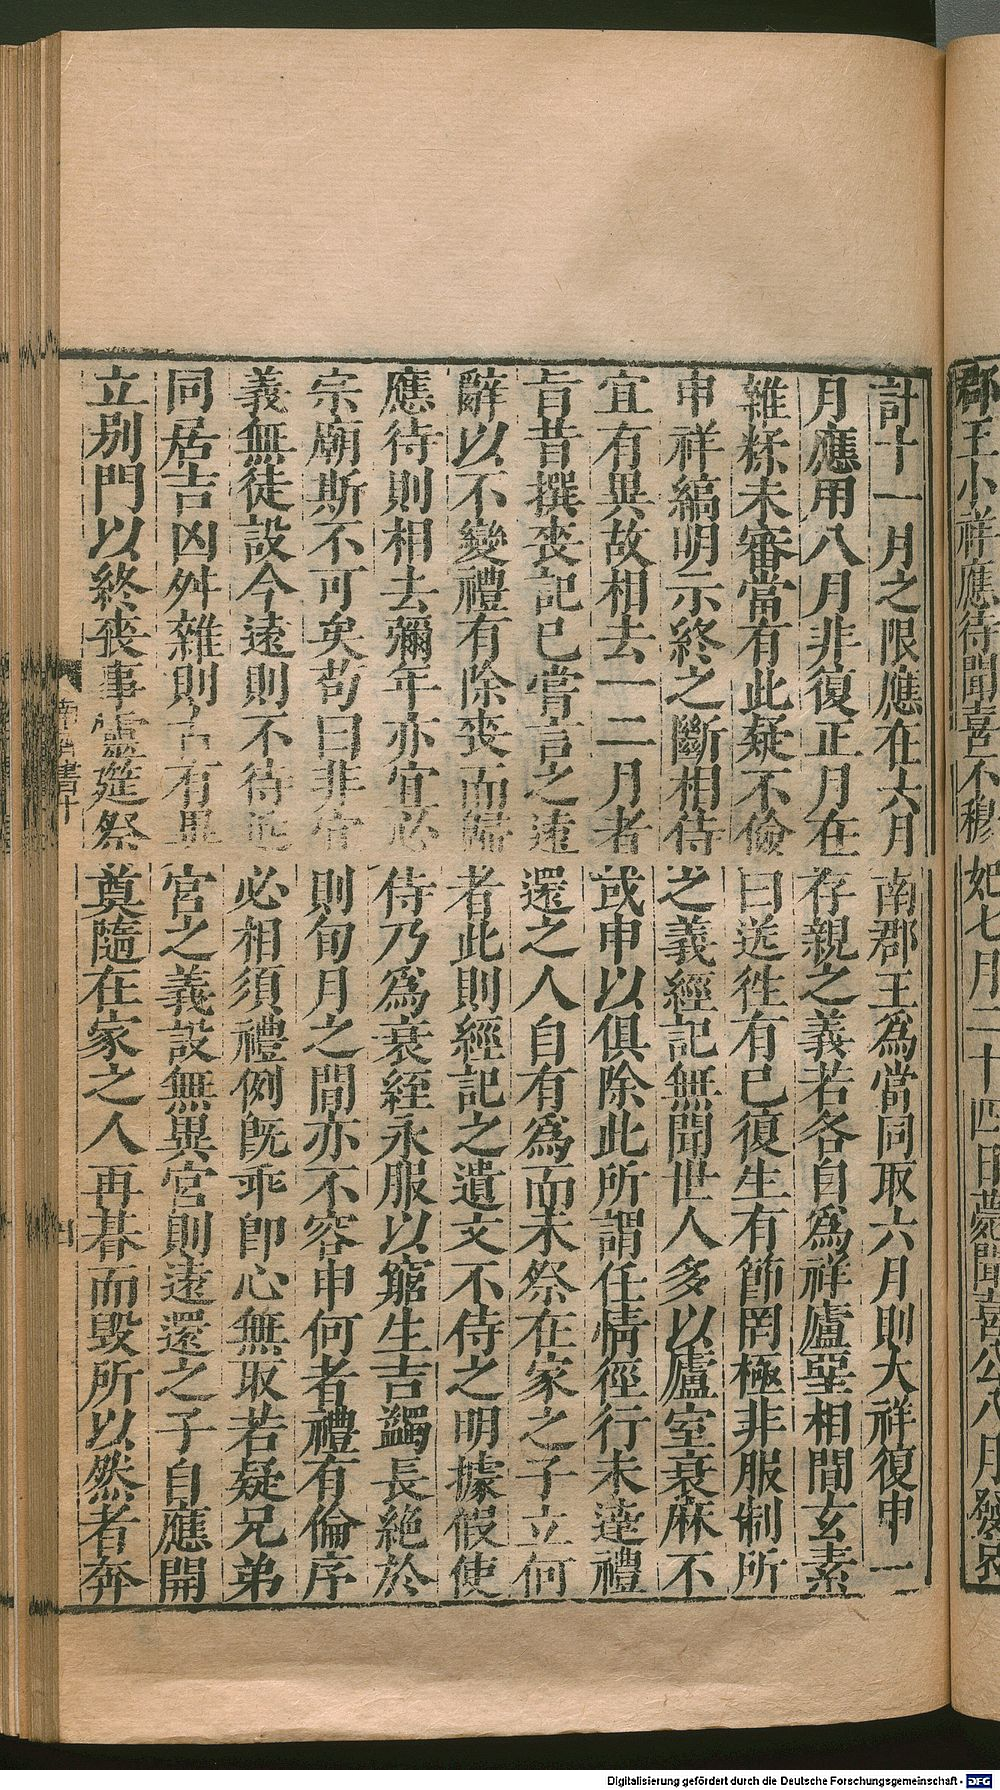 郡王小祥應待聞喜不穆妃七月二十四日薨聞喜公八月發哀
計十一月之限應在六月南郡王爲當同取六月則大祥復申一
月應用八月非復正月在存親之義若各自爲祥廬堊相間玄素
雜糅未審當有此疑不儉曰送往有已復生有節罔極非服制所
申祥縞明示終之斷相待之義經記無聞世人多以廬室衰麻不
宜有異故相去一二月者或申以俱除此所謂任情徑行未達禮
旨昔撰喪記已嘗言之遠還之人自有爲而未祭在家之子立何
辭以不變禮有除喪而歸者此則經記之遺文不待之明據假使
應待則相去彌年亦宜必待乃爲衰絰永服以窮生吉蠲長絶於
宗廟斯不可矣苟曰非宜則旬月之間亦不容申何者禮有倫序
義無徒設今遠則不待近必相須禮例既乖即心無取若疑兄弟
同居吉凶舛雜則古有異宮之義設無異宮則遠還之子自應開
立別門以終喪事靈筵祭奠隨在家之人再朞而毀所以然者奔
書十
Digitalisierung gefördert durch die Deutsche Forschungsgemeinschaft - DFG